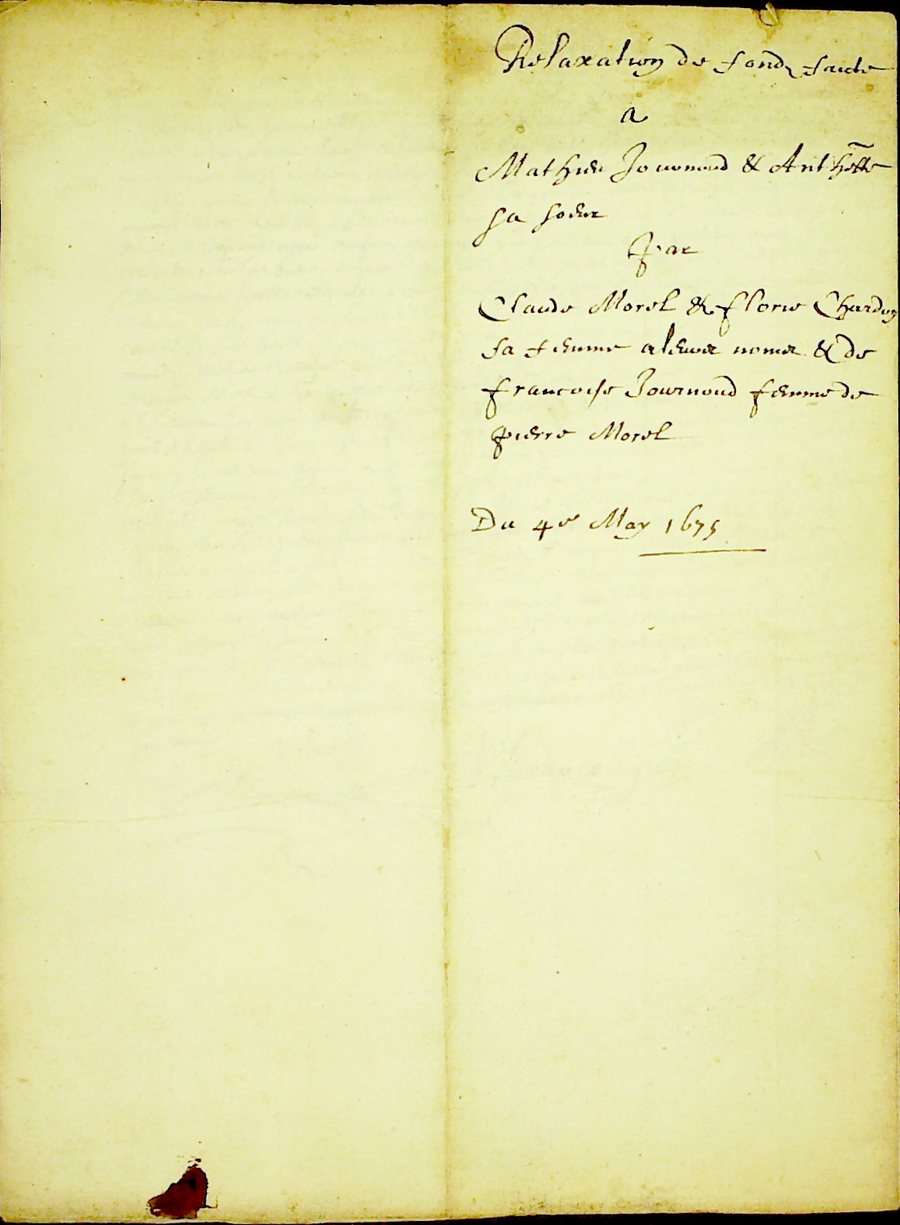 Relaxation de fondz faicte
a
Mathieu Journoud & Anthtte
sa soeur
par
Claude Morel & florie Chardon
sa femme a leurs noms & de
francoise Journoud femme de
pierre Morel
Du 4e May 1675